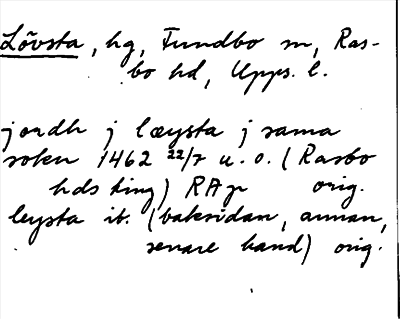 Lövsta, hg, Fundbo sn, Ras-
bo hd, Upps. l.
jordh j læysta j sama
soken 1462 22/7 u. o. (Rasbo
hds ting) RAp orig.
leysta ib. (baksidan, annan,
senare hand) orig.